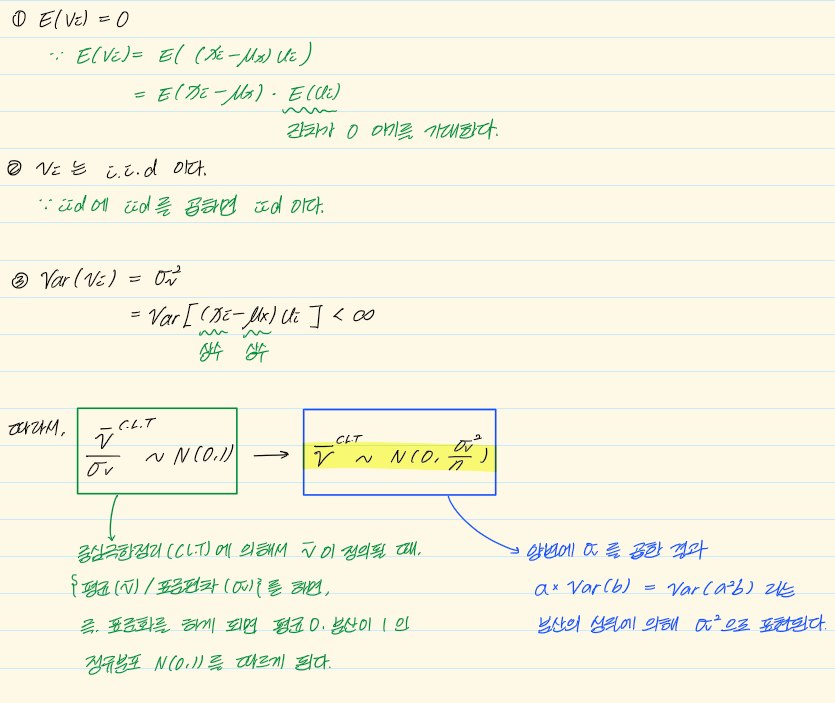 ① E(vᵢ) = 0
∵ E(vᵢ) = E( (xᵢ-μx) uᵢ )
= E(xᵢ-μx) · E(uᵢ)
잔차가 0 이기를 기대한다.
② vᵢ 는 i.i.d 이다.
∵ iid에 iid를 곱하면 iid 이다.
③ Var(vᵢ) = σv²
= Var[(xᵢ-μx) uᵢ ] < ∞
상수 상수
따라서, v̄/σv C.L.T ~ N(0,1) → v̄ CLT ~ N(0, σv²/n)
중심극한정리(CLT)에 의해서 v̄ 이 정의될 때,
{평균(v̄) / 표준편차(σv)}를 하면,
즉, 표준화를 하게 되면 평균 0, 분산이 1 인
정규분포 N(0,1)를 따르게 된다.
양변에 σv 를 곱한 결과
a × Var(b) = Var(a²b) 라는
분산의 성질에 의해 σv²으로 표현된다.